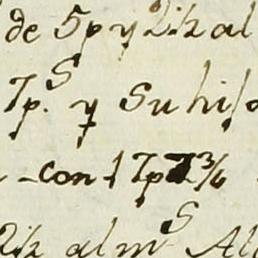 de 5p y 2½ al
7p.s y Su hijo
con 1 7p
2½ al m s Al